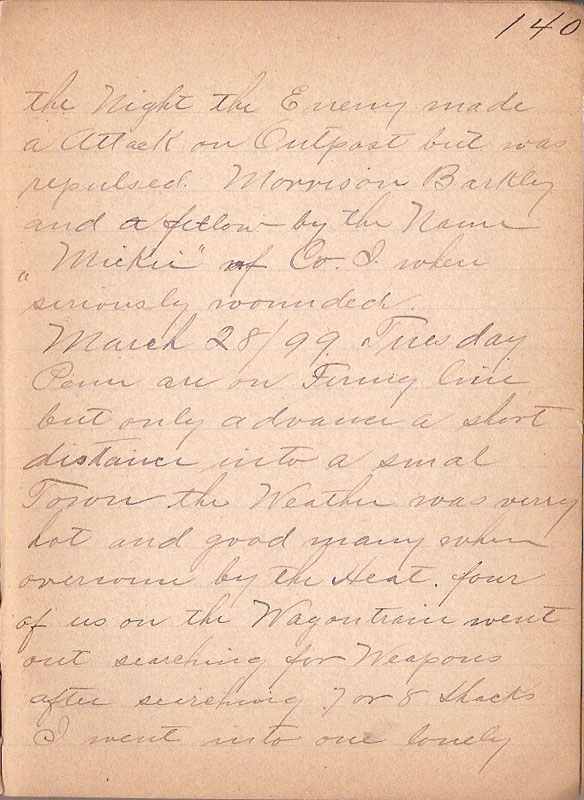 140
the Night the Enemy made
a Attack on Outpost but was
repulsed. Morrison Barkley
and a fellow by the Name
„Mickii" of Co. I when
seriously wounded.
March 28/99. Tuesday
Penn are on Firing line
but only advance a short
distance into a smal
Town the Weather was verry
hot and good many when
overcome by the Heat. four
of us on the Wagontrain went
out searching for Weapons
after seirching 7 or 8 Shacks
I went into one lonely